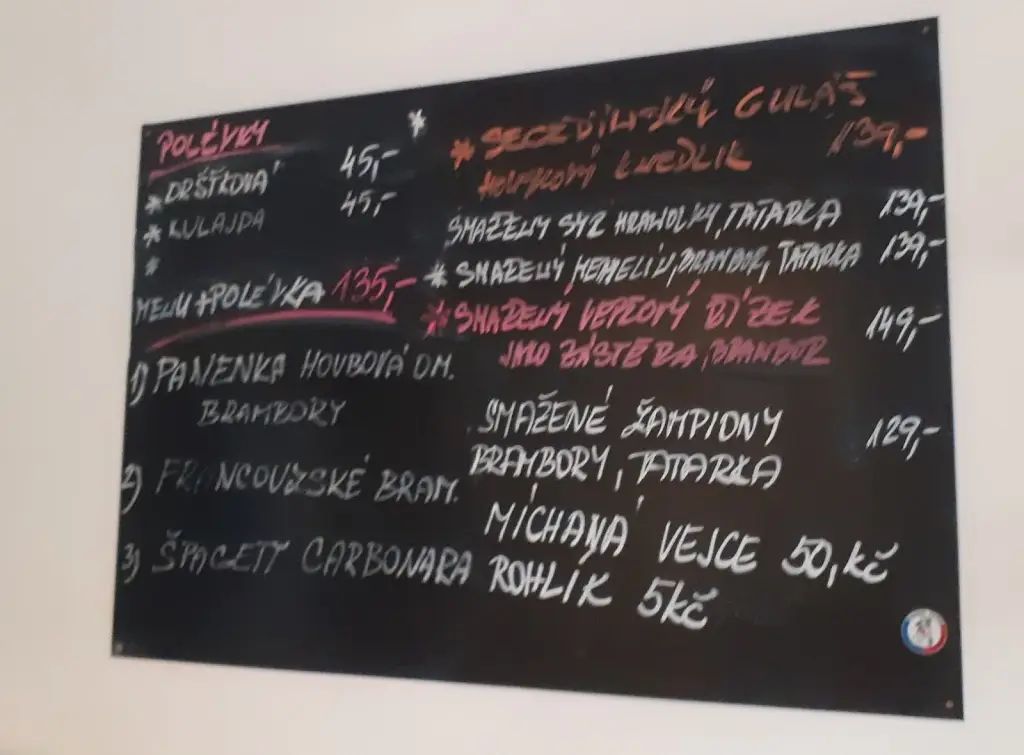 POLÉVKY
* DRŠŤKOVÁ 45,-
* KULAJDA 45,-
*
MENU + POLÉVKA 135,-
1) PANENKA HOUBOVÁ OM.
BRAMBORY
2) FRANCOUZSKÉ BRAM.
3) ŠPAGETY CARBONARA
*
* SEGEDÍNSKÝ GULÁŠ
KNEDLIK 139,-
SMAŽENÝ SÝR HRANOLKY, TATARKA 139,-
* SMAŽENÝ HERMELÍN, BRAMBOR, TATARKA 139,-
* SMAŽENÝ VEPŘOVÝ ŘÍZEK
JAKO ZÁSTĚRA, BRAMBOR 149,-
SMAŽENÉ ŽAMPIONY 129,-
BRAMBORY, TATARKA
MÍCHANÁ VEJCE 50,KČ
ROHLÍK 5KČ